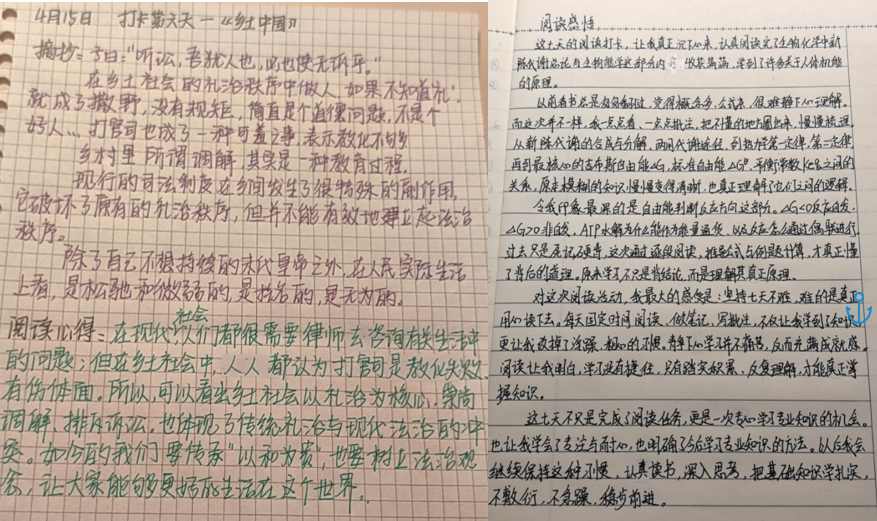 4月15日 打卡第六天—《乡土中国》
摘抄：子曰："听讼，吾犹人也，必也使无讼乎。"
在乡土社会的礼治秩序中做人，如果不知道"礼"，
就成了撒野，没有规矩，简直是个道德问题，不是个
好人…打官司也成了一种可羞之事，表示教化不够。
乡村里所谓调解，其实是一种教育过程。
现行的司法制度在乡间发生了很特殊的副作用，
它破坏了原有的礼治秩序，但并不能有效地建立起法治
秩序。
除了自己不想持续的末代皇帝之外，在人民实际生活
上看，是松弛和微弱的，是挂名的，是无为的。
阅读心得：在现代社会，人们都很需要律师去咨询有关生活中
的问题；但在乡土社会中，人人都认为打官司是教化失败，
有伤体面。所以，可以看出乡土社会以礼治为核心，崇尚
调解，排斥诉讼，也体现了传统礼治与现代法治的冲
突。如今的我们要传承"以和为贵"，也要树立法治观
念，让大家能够更好的生活在这个世界。
阅读感悟
这七天的阅读打卡，让我真正沉下心来，认真阅读完了生物化学中新
陈代谢总论与生物能学这部分内容，收获满满，学到了许多关于人体机能
的原理。
从前看书总是匆匆翻过，觉得概念多，公式杂，很难静下心理解。
而这次并不一样，我一点点看、一点点批注，把不懂的地方圈出来，慢慢梳理。
从新陈代谢的合成与分解、两用代谢途径，到热力学第一定律，第二定律
再到最核心的吉布斯自由能ΔG，标准自由能ΔG°，平衡常数Keq之间的
关系，原本模糊的知识慢慢变得清晰，也真正理解了它们之间的逻辑。
令我印象最深的是自由能判断反应方向这部分。ΔG<0反应自发，
ΔG>0非自发，ATP水解为什么能作为能量通货，以及反应怎么通过偶联进行
过去只是死记硬背，这次通过逐段阅读，推导公式与例题计算，才真正懂
了背后的道理。原来学习不只是背结论，而是理解其真正原理。
对这次阅读活动，我最大的感受是：坚持七天不难，难的是真正
用心读下去。每天固定时间阅读、做笔记、写批注，不仅让我学到了知识
更让我改掉了浮躁、粗心的习惯。静下心学习并不痛苦，反而充满成就感。
阅读让我明白，学习没有捷径，只有踏实积累、反复理解，才能真正掌
握知识。
这七天不只是完成了阅读任务，更是一次专心学习专业知识的机会。
也让我学会了专注与耐心，也明确了今后学习专业知识的方法。以后我会
继续保持这种习惯，认真读书，深入思考，把基础知识学扎实，
不敷衍，不急躁，稳步前进。